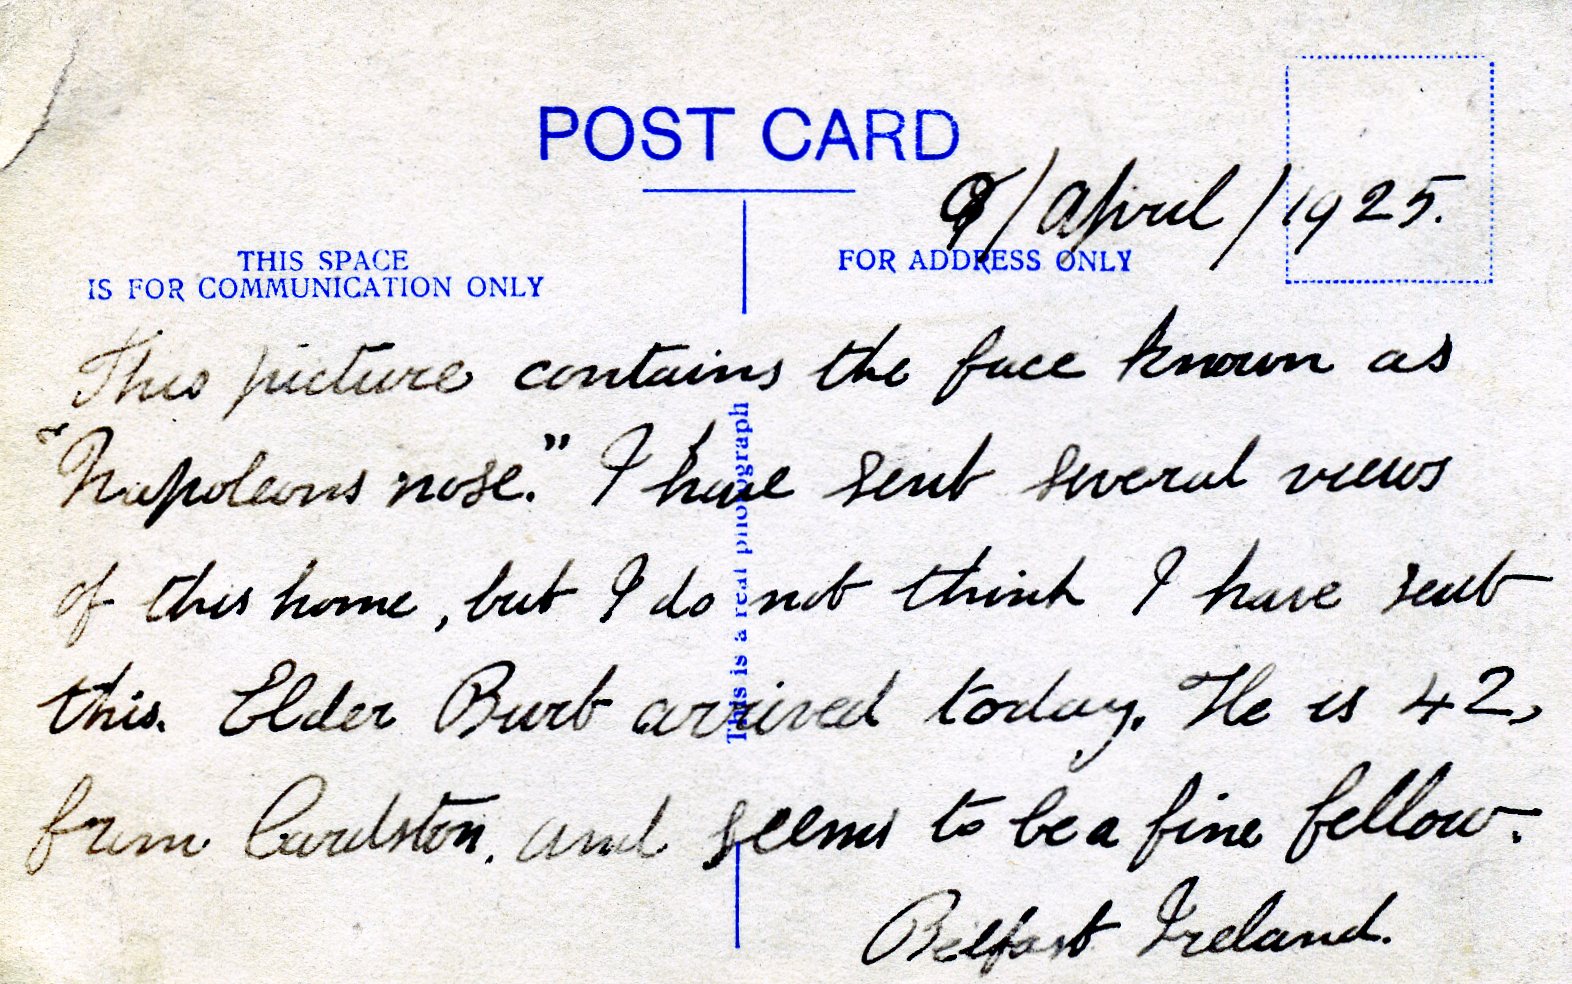 POST CARD
9/April/1925.
THIS SPACE
IS FOR COMMUNICATION ONLY
FOR ADDRESS ONLY
This picture contains the face known as
"Napoleons nose." I have sent several views
of this home, but I do not think I have sent
this. Elder Burt arrived today. He is 42,
from Cardston, and seems to be a fine fellow.
Belfast Ireland.
This is a real photograph